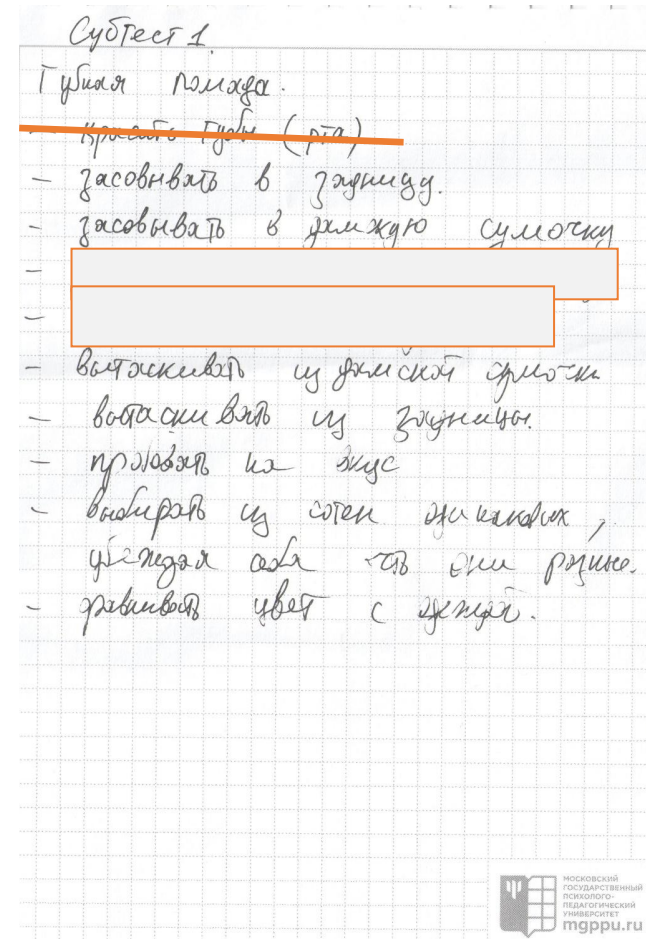 Субтест 1.
Губная помада.
– красить губы (рта)
– засовывать в задницу.
– засовывать в дамскую сумочку
–
–
– вытаскивать из дамской сумочки
– вытаскивать из задницы.
– пробовать на вкус
– выбирать из сотен одинаковых,
убеждая себя что они разные.
– сравнивать цвет с одеждой.
МОСКОВСКИЙ
ГОСУДАРСТВЕННЫЙ
ПСИХОЛОГО-
ПЕДАГОГИЧЕСКИЙ
УНИВЕРСИТЕТ
mgppu.ru